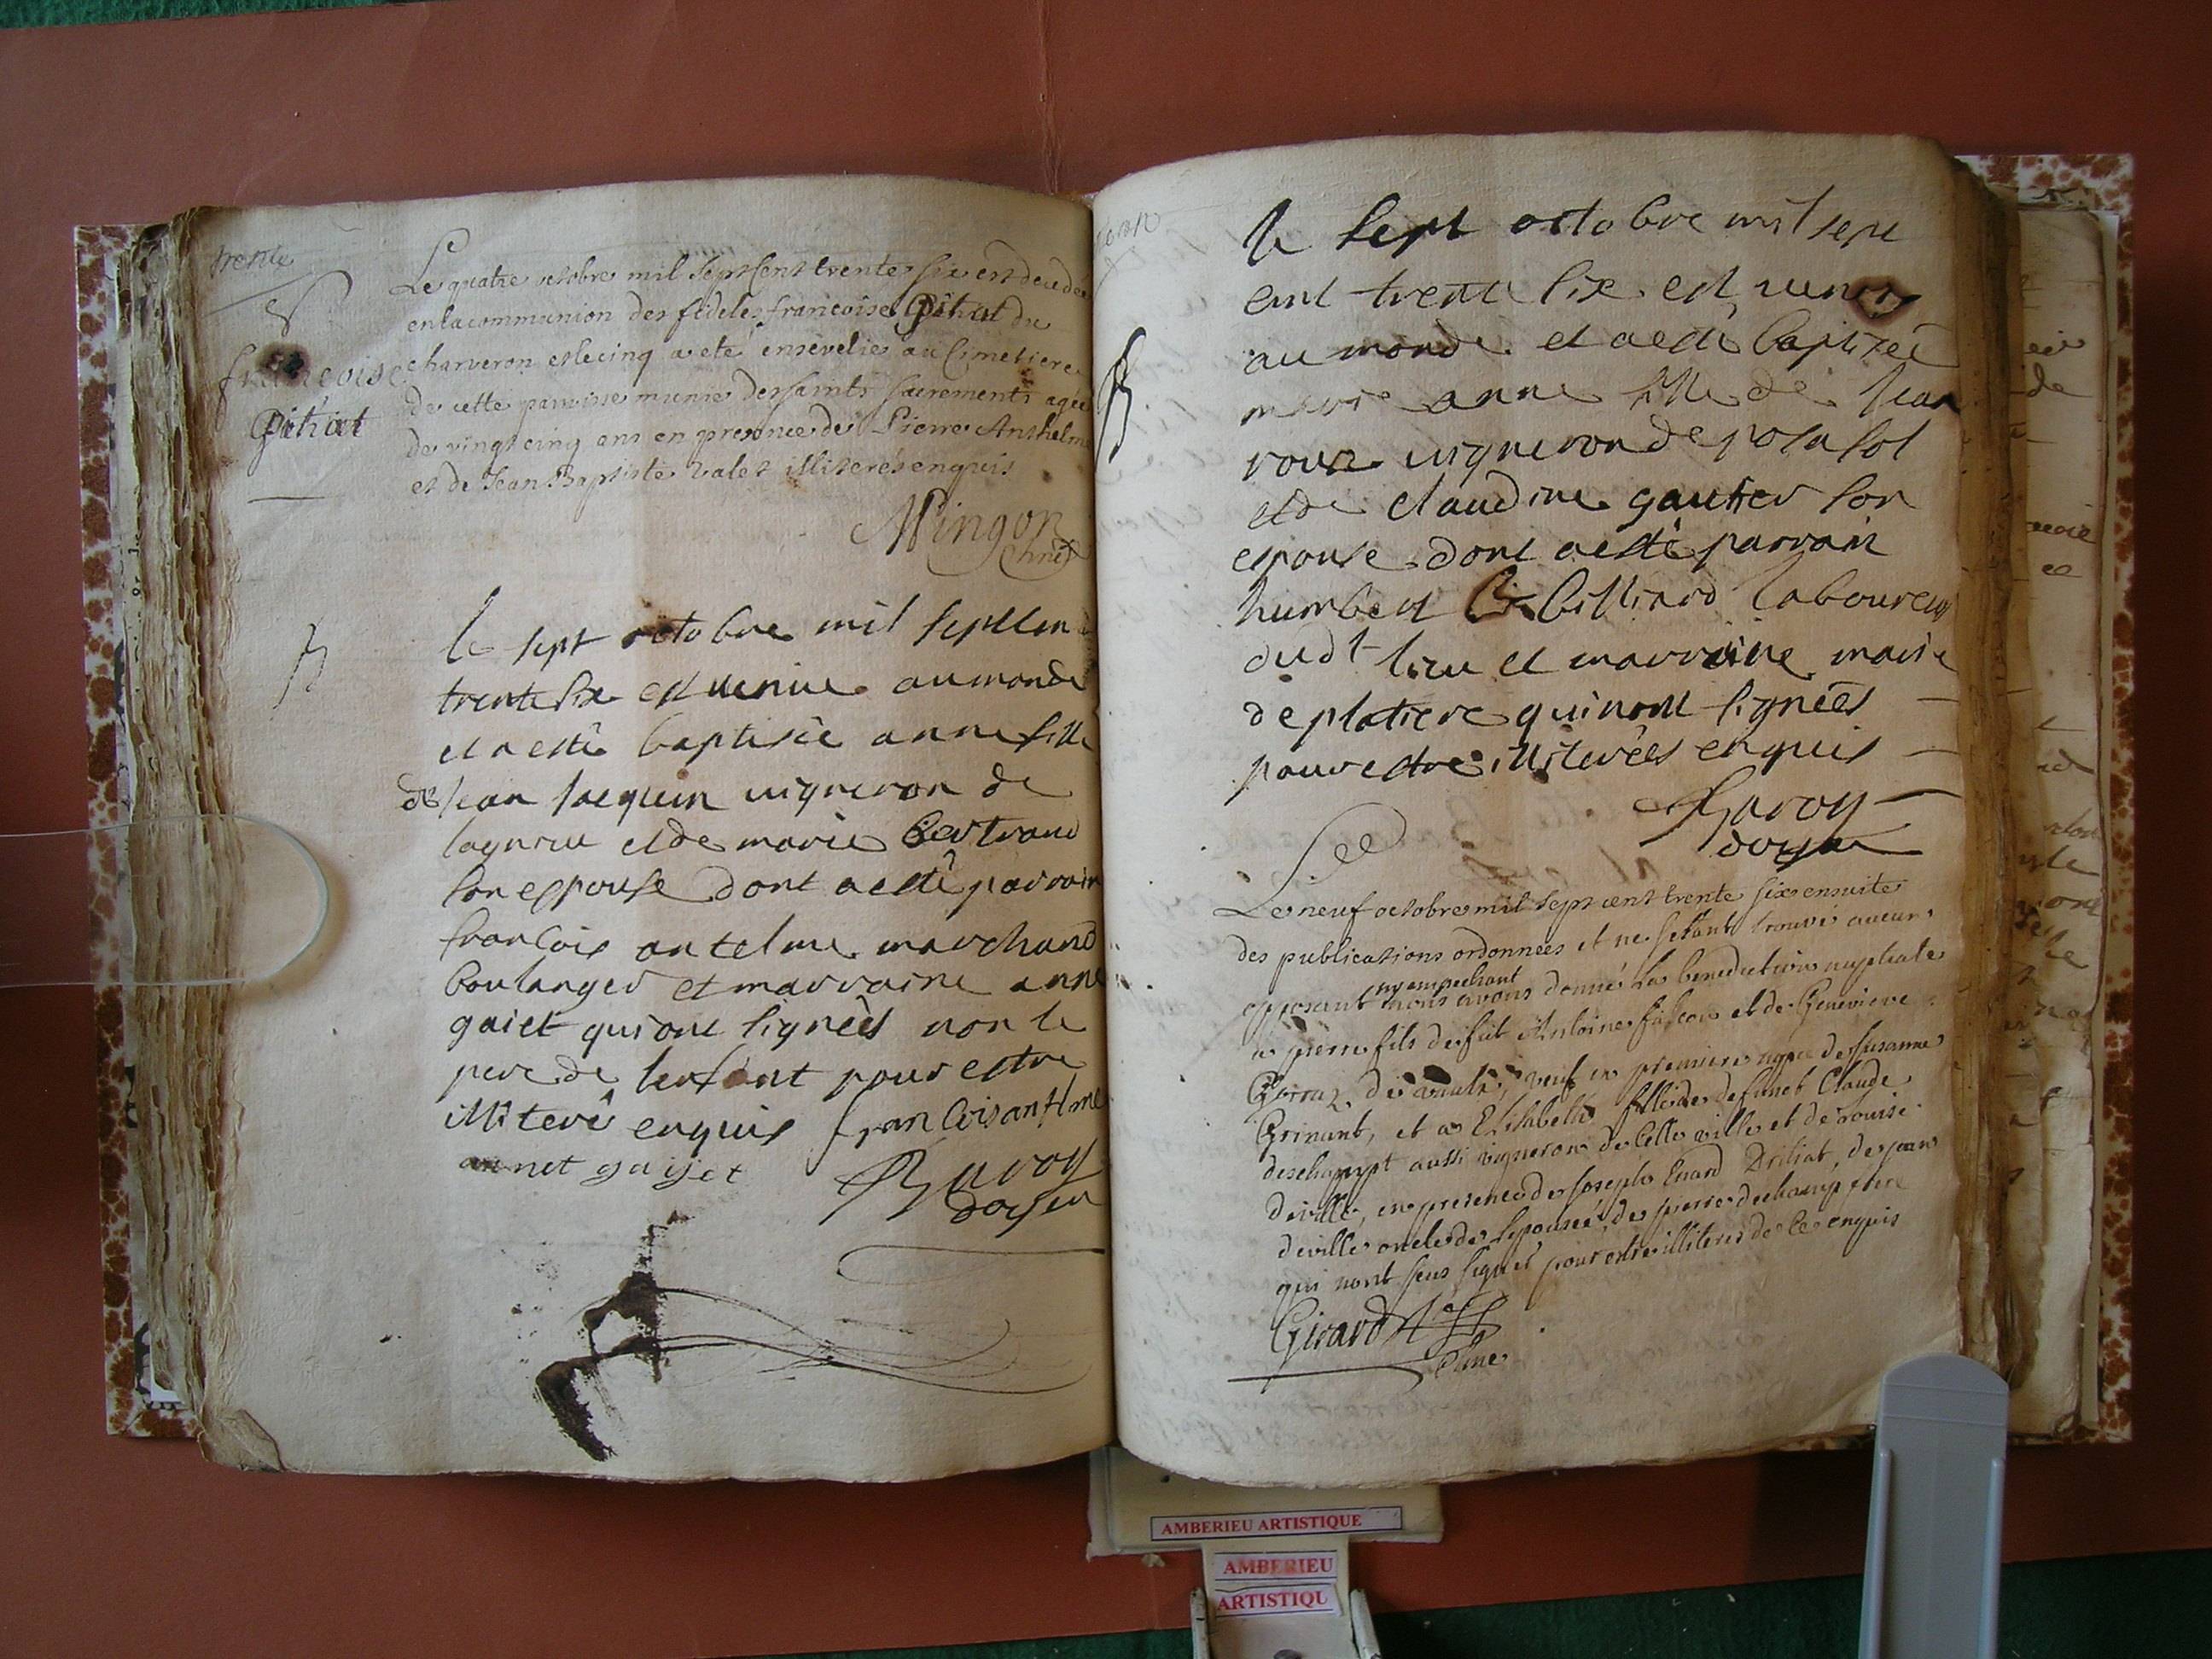 trente
S
françoise
Pithiat
Le quatre octobre mil Sept Cent trente six est decedée
en la communion des fideles françoise Pithiat du
charveron et le cinq a eté ensevelie au Cimetiere
de cette paroisse munie des saints sacrements agée
de vingt cinq ans en presence de Pierre Anthelme
et de Jean Baptiste Valet illiterés enquis
Mingon
B
le sept octobre mil sept Cen
trente six est venue au monde
et a esté baptisée anne fille
de Jean Jacquin vigneron de
lagnieu et de marie Bertrand
son espouse dont a esté parrain
francois antelme marchand
boulanger et marraine anne
gaiet qui ont signèes non le
pere de lenfant pour estre
illiteré enquis francois antlme
annet gayet
Ravoy
doyen
B
le sept octobre mil sept
cent trente six est venue
au monde et a esté baptisée
marie anne fille de Jean
roux vigneron de posafol
et de claudine gautier son
espouse dont a esté parrain
humbert billiard laboureur
dudt lieu et marraine marie
de platiere qui nont signées
pour estre illiterées enquis
Ravoy
doyen
Le neuf octobre mil sept cent trente six ensuite
des publications ordonnées et ne sestant trouvé aucun
opposant ny empechant nous avons donné la benediction nuptiale
a pierre fils de fut Antoine falcon et de Genevieve
de vaulx, veuf en premiere nopce de Susanne
Grinant, et a Elisabelle fille de defunct Claude
deschampt aussi vigneron de Celle ville et de Louise
deville, en presence de Joseph Enard Driliat, de jean
deville oncle de lepousée, de pierre dechamp frere
qui nont sceu signer pour estre illiteres de ce enquis
Girard
AMBERIEU ARTISTIQUE
AMBERIEU
ARTISTIQU